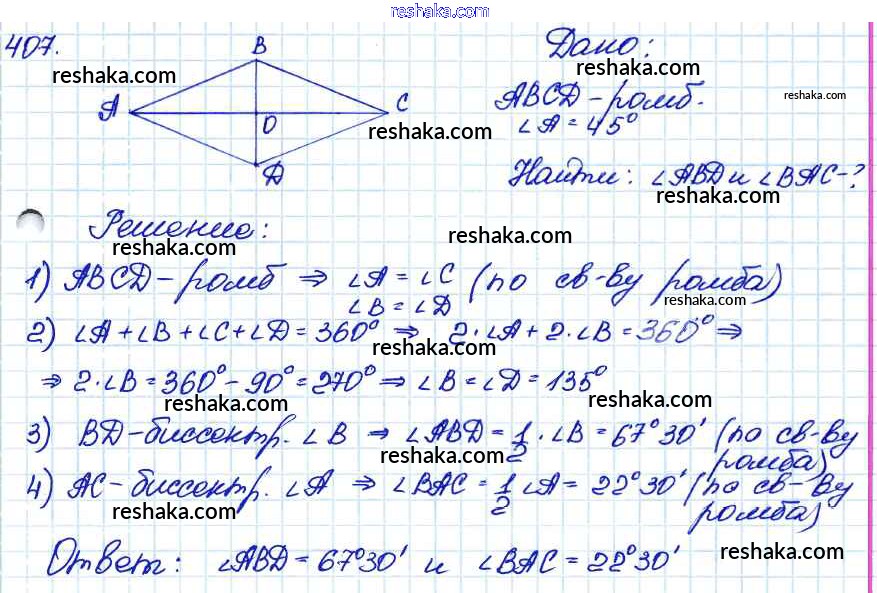 reshaka.com
407.
B
reshaka.com
A
C
O
reshaka.com
D
Дано:
reshaka.com
ABCD - ромб.
reshaka.com
∠A = 45°
Найти: ∠ABD и ∠BAC - ?
reshaka.com
Решение:
reshaka.com
reshaka.com
1) ABCD - ромб ⇒ ∠A = ∠C (по св-ву ромба)
∠B = ∠D
reshaka.com
2) ∠A + ∠B + ∠C + ∠D = 360° ⇒ 2·∠A + 2·∠B = 360° ⇒
reshaka.com
⇒ 2·∠B = 360° - 90° = 270° ⇒ ∠B = ∠D = 135°
reshaka.com
reshaka.com
3) BD - биссектр. ∠B ⇒ ∠ABD = 1/2 · ∠B = 67°30' (по св-ву
ромба)
reshaka.com
4) AC - биссектр. ∠A ⇒ ∠BAC = 1/2 ∠A = 22°30' (по св-ву
ромба)
reshaka.com
Ответ: ∠ABD = 67°30' и ∠BAC = 22°30'
reshaka.com